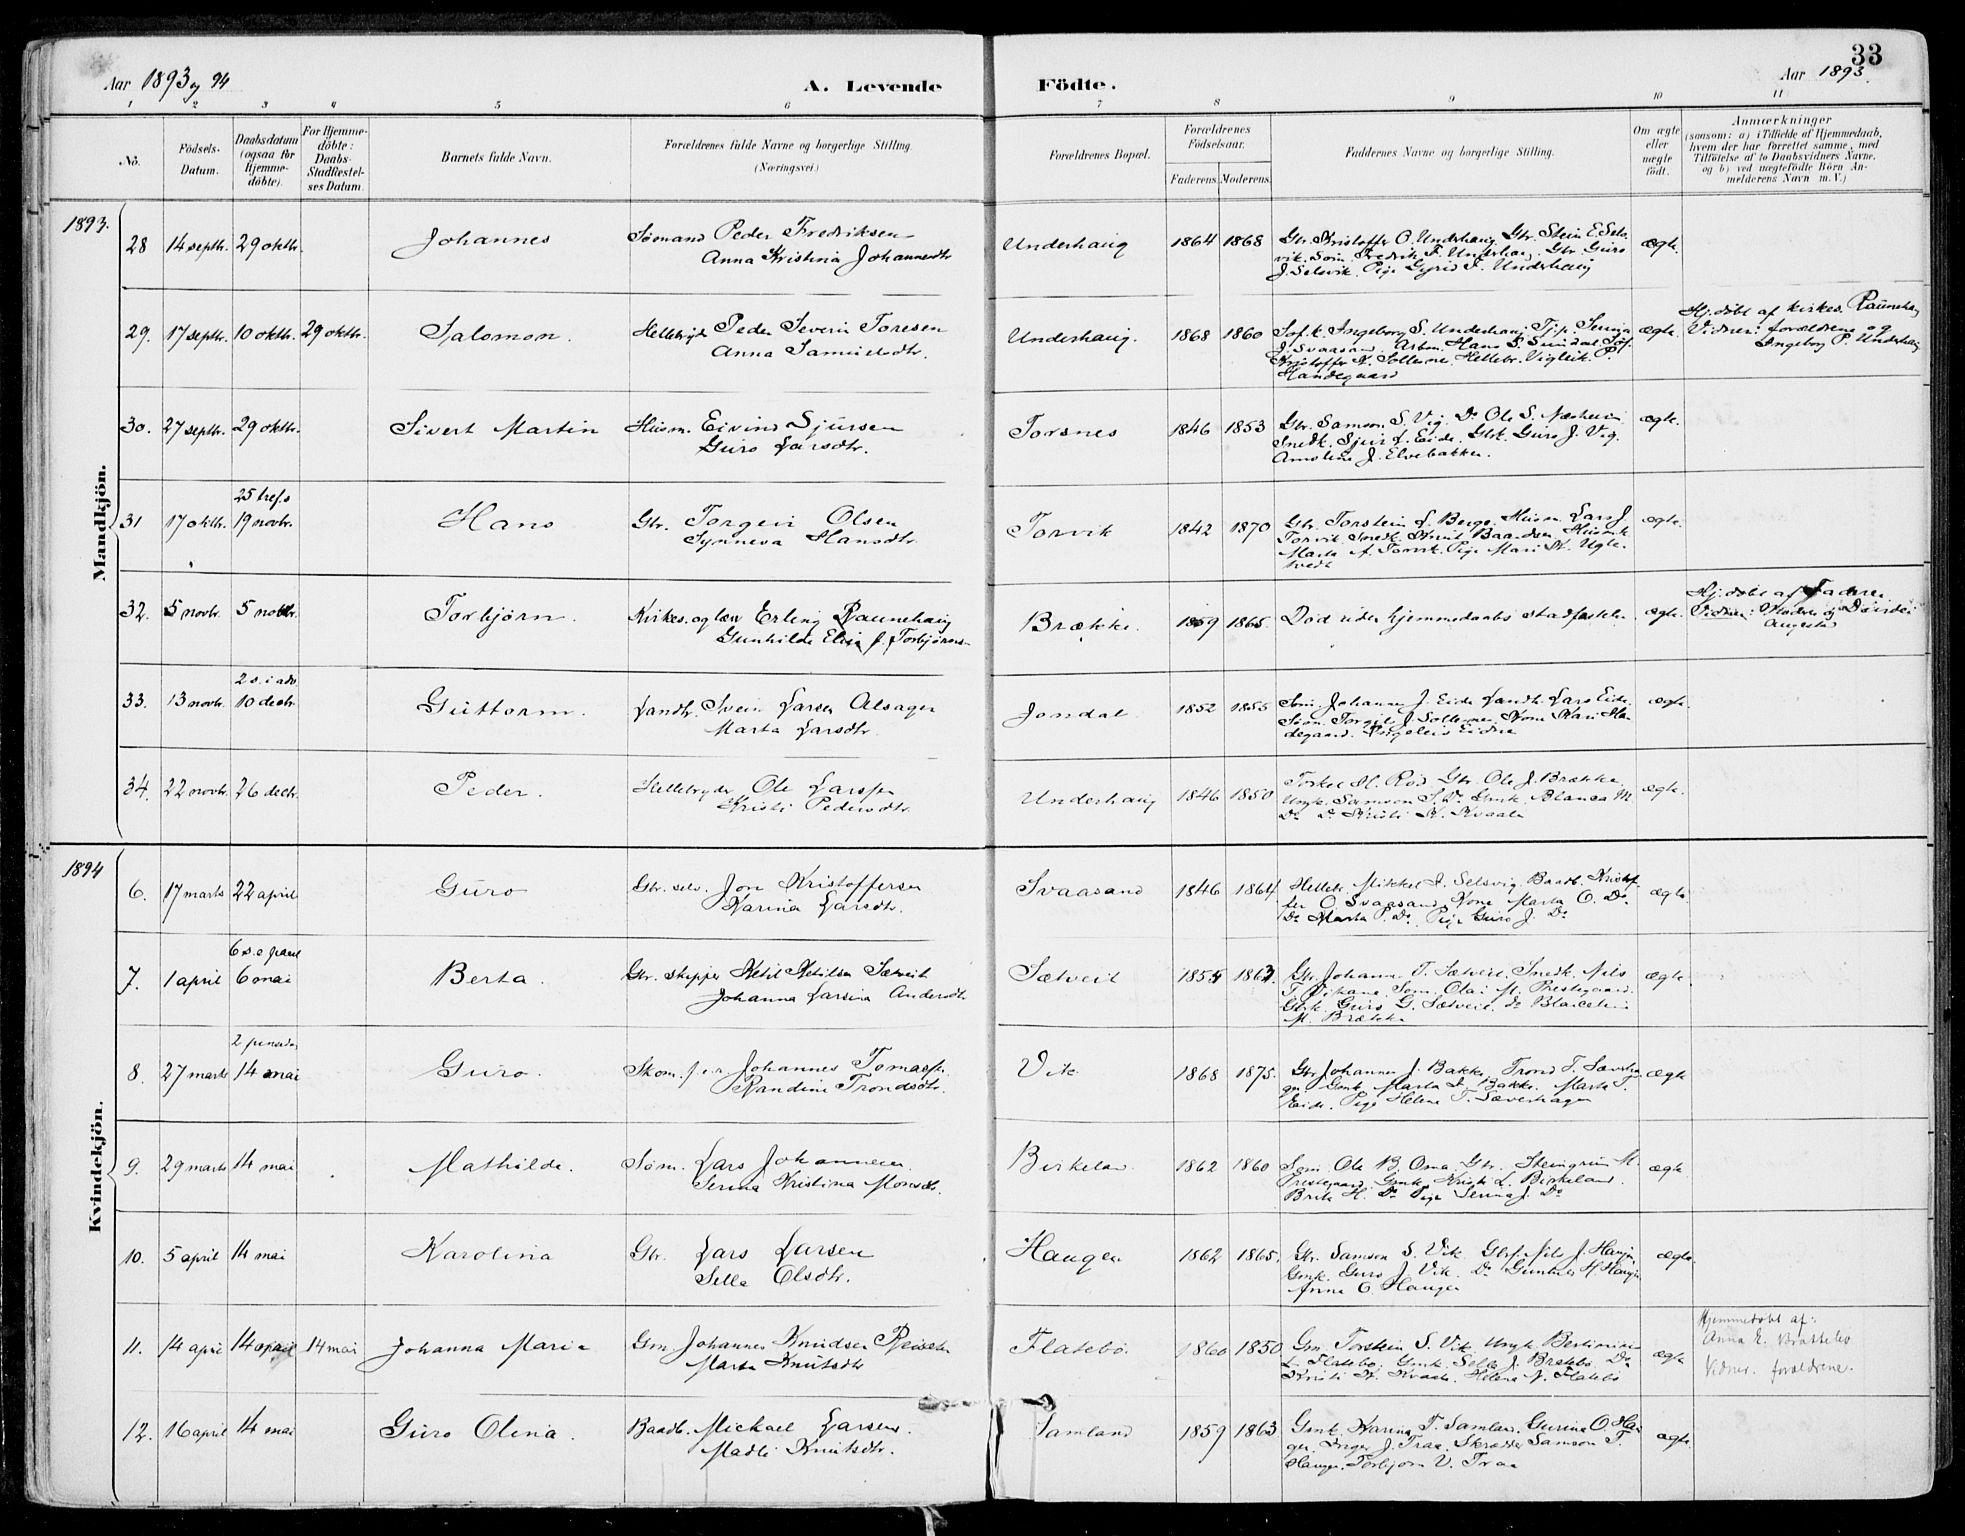 33
Aar 1893 og 94
A. Levende
Födte.
Aar 1893.
1 2 3 4 5 6 7 8 9 10 11
No.
Födsels-
Datum.
Daabsdatum
(ogsaa for
Hjemme-
döbte).
For Hjemme-
döbte:
Daabs-
Stadfæstel-
ses Datum.
Barnets fulde Navn.
Forældrenes fulde Navne og borgerlige Stilling.
(Næringsvei.)
Forældrenes Bopæl.
Forældrenes
Födselsaar.
Faderens.
Moderens.
Faddernes Navne og borgerlige Stilling.
Om ægte
eller
uægte
födt.
Anmærkninger
(saasom: a) i Tilfælde af Hjemmedaab,
hvem der har forrettet samme, med
Tilföielse af to Daabsvidners Navne,
og b) ved uægtefödte Börn An-
melderens Navn m. V.)
Mandkjön.
1893.
28 14 septbr. 29 oktbr. Johannes Sömand Peder Fredriksen
Anna Kristina Johannesdtr
Underhaug 1864 1868 Gbr. Kristoffer O. Underhaug. Gbr. Stein E. Sels-
vik. Söm. Fredrik F. Underhaug. Gbr. Guro
J. Selsvik. Pige Gyrid F. Underhaug
ægte.
29. 17 septbr. 10 oktbr. 29 oktbr. Salomon. Hellebryder Peder Severin Toresen
Anna Samuelsdtr.
Underhaug. 1868 1860 Ingeborg S. Underhaug
J. Svaasand. Arbm. Hans S.
Kristoffer Hellebr. Vigleik P.
Handegaard
ægte.
Hj. döbt af kirkes. Raunehaug
Vidner: forældrene og
Ingeborg P. Underhaug
30. 27 septbr. 29 oktbr. Sivert Martin Husm. Eivind Sjursen
Guro Larsdtr.
Torsnes 1846 1853 Gbr. Samson S. Vig. Do Ole S.
Snedk. Sjur L. Eide. Gbk. Guro J. Vig.
J. Elvebakken.
ægte.
31 17 oktbr. 25 tref.s
19 novbr. Hans Gbr. Torgeir Olsen
Synneva Hansdtr.
Torvik 1842 1870 Gbr. Torstein L. Berge. Husm. Lars J.
Torvik. Snedk. Baardsen
Marta A. Torvik. Pige Mari
tvedt
ægte.
32. 5 novbr. 5 novbr. Torbjörn. Kirkes. og lær. Erling Raunehaug
Gunhilde Elise f. Torbjörns-
Brække. 1859 1865. Död uden hjemmedaabs stadfæstelse. ægte.
Hj. döbt af Faderen.
Vidner: Moder og
Augestad
33. 13 novbr. 2 s. i adv.
10 decbr. Guttorm. Landh. Svein Larsen Alsager
Marta Larsdtr.
Jondal 1852 1855 Söm. Johannes J. Eide Landh. Lars Eide.
Söm. Torgils J. Kone Kari Han-
degaard.
ægte.
34. 22 novbr. 26 decbr. Peder. Hellebryder Ole Larssen
Kristi Pedersdtr.
Underhaug 1846 1850 Torkel H. Röd Gbr. Ole J. Brække
Ungk. Samson S. Do Gmk. Blanca M.
Do Do Kristi K. Kvaale
ægte.
Kvindekjön.
1894
6. 17 marts 22 april Guro Gbr. selv. Jon Kristoffersen
Karina Larsdtr.
Svaasand 1846 1864. Hellebr. Mikkel I. Selsvig. Baadb. Kristof-
fer O. Svaasand. Kone Marta O. Do
Do Marta P. Do. Pige Guro J. Do
ægte
7. 1 april 6 s. e. paask
6 mai Berta Gbr. skipper Ketil Ketilsen Sætveit
Johanna Larsina Andersdtr
Sætveit 1855 1863. Gbr. Johannes T. Sætveit. Snedk. Nils
T. Vikane. Söm. Olai M. Prestegaard.
Gbrk. Guro G. Sætveit. Do
M. Brække
ægte
8. 27 marts 2 pinsedag
14 mai Guro. Skom. Johannes Tomass.
Randine Trondsdtr.
Vik 1868 1875. Gbr. Johannes J. Bakke. Trond T. Sæverha-
gen Gmk. Marta I. Bakke. Marta T.
Eide. Pige Helene T. Sæverhagen
ægte
9. 29 marts 14 mai Mathilde. Söm. Lars Johannesen.
Serina Kristina Monsdtr.
Birkeland. 1862 1860 Söm. Ole B. Oma. Gbr. Steingrim M.
Prestegaard. Gmk. Kristi L. Birkeland.
Brita H. Do Pige Serina J. Do
ægte
10. 5 april 14 mai Karolina Gbr. Lars Larsen
Sella Olsdtr.
Haugen 1862 1865. Gbr. Samson S. Vik. Nils J. Haugen
Gmk. Guro J. Vik. Do H. Haugen
Anna O. Haugen
ægte.
11. 14 april 14 april 14 mai Johanna Maria Gm. Johannes Knudsen
Marta Knutsdtr
Flatebö. 1860 1850 Gm. Torstein S. Vik. Ungk.
L. Flatebö. Gmk. Sella J. Brattebö. Do
Kristi K. Kvaale. Helena N. Flatebö
ægte
Hjemmedöbt af:
Anna E. Brattebö
Vidner. forældrene.
12. 16 april 14 mai Guro Olina. Baadb. Mickael Larsen.
Madli Knutsdtr.
Samland 1859 1863 Gmk. Karina T. Samland. Gurine O. Hau-
gen. Inger J. Traa. Skrædder Samson T.
Haugen. Torbjörn V. Traa
ægte.